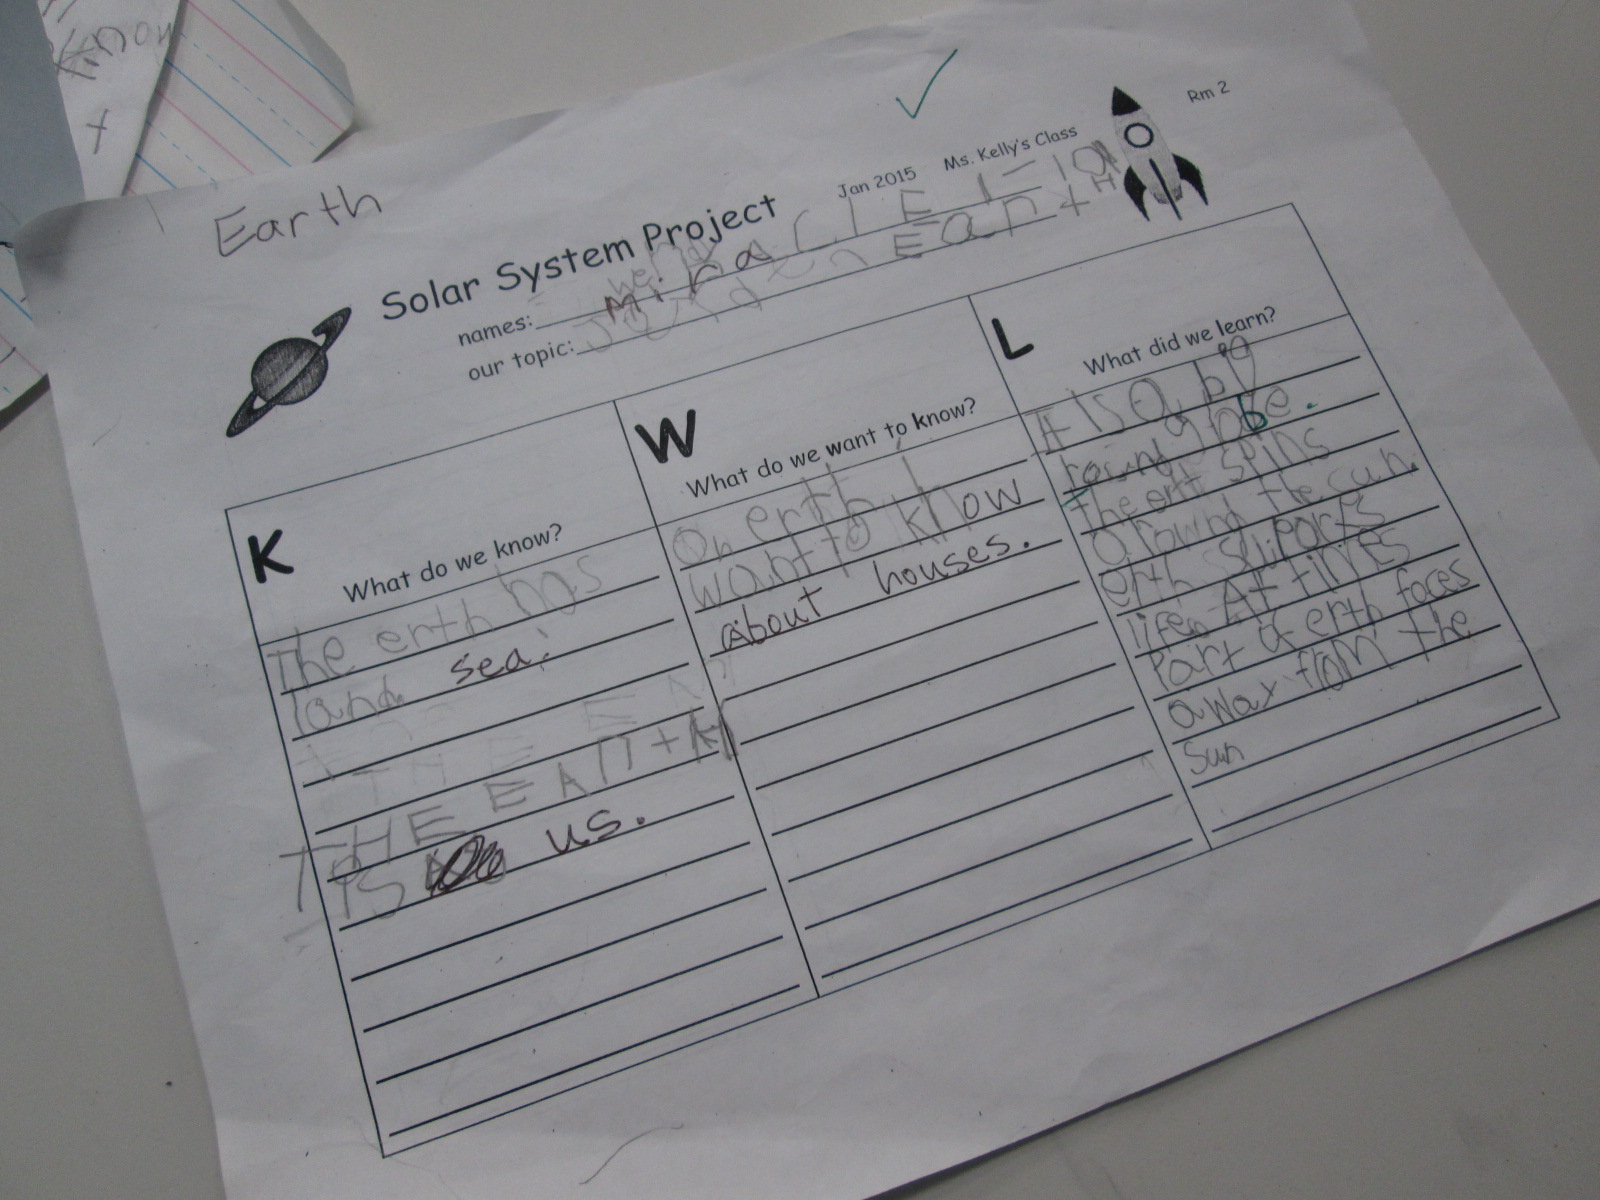 know
Earth
Jan 2015 Ms. Kelly's Class
Rm 2
Solar System Project
names: miracl E
our topic: Jorden Eanth
K
What do we know?
The erth has
land sea.
THE EAntH
IS us.
W
What do we want to know?
On erth
want to know
about houses.
L
What did we learn?
it is a big
round globe.
the ert spins
around the sun.
erth supports
life. At times
Part of erth faces
away from the
Sun